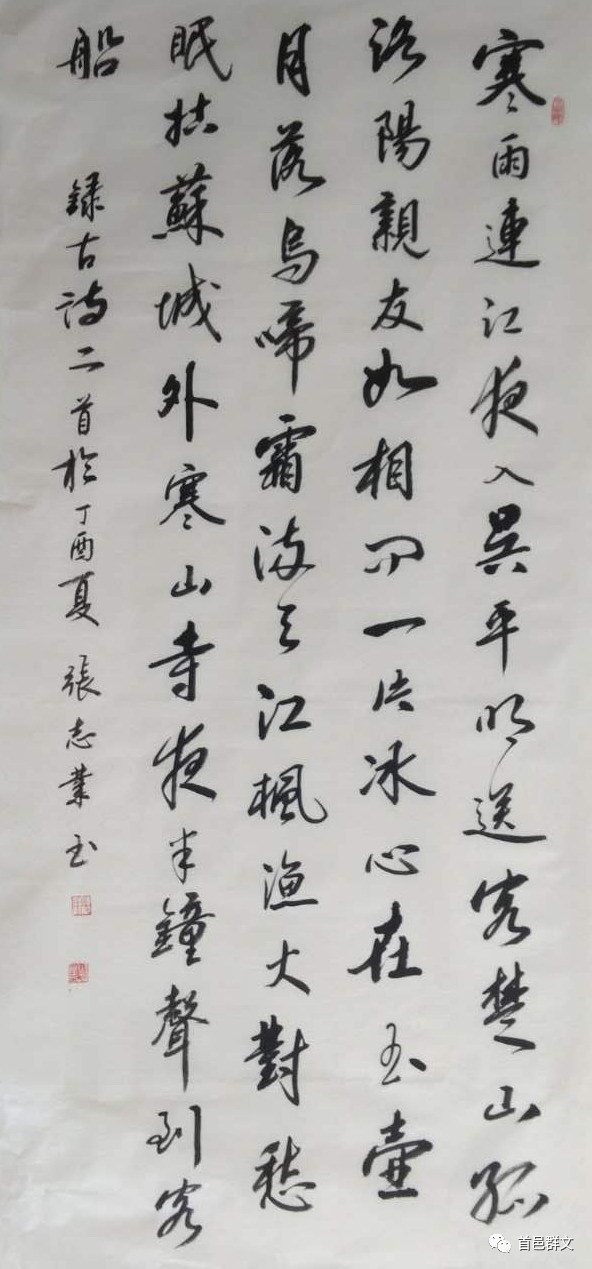 寒雨連江夜入吳平明送客楚山孤
洛陽親友如相問一片冰心在玉壺
月落烏啼霜滿天江楓漁火對愁
眠姑蘇城外寒山寺夜半鐘聲到客
船
録古詩二首於丁酉夏 張志業書
首邑群文